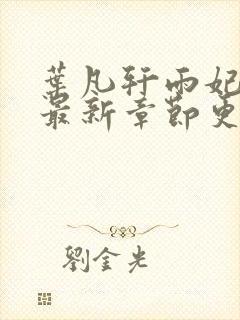 葉凡轩雨妃
最新章節更
劉金光